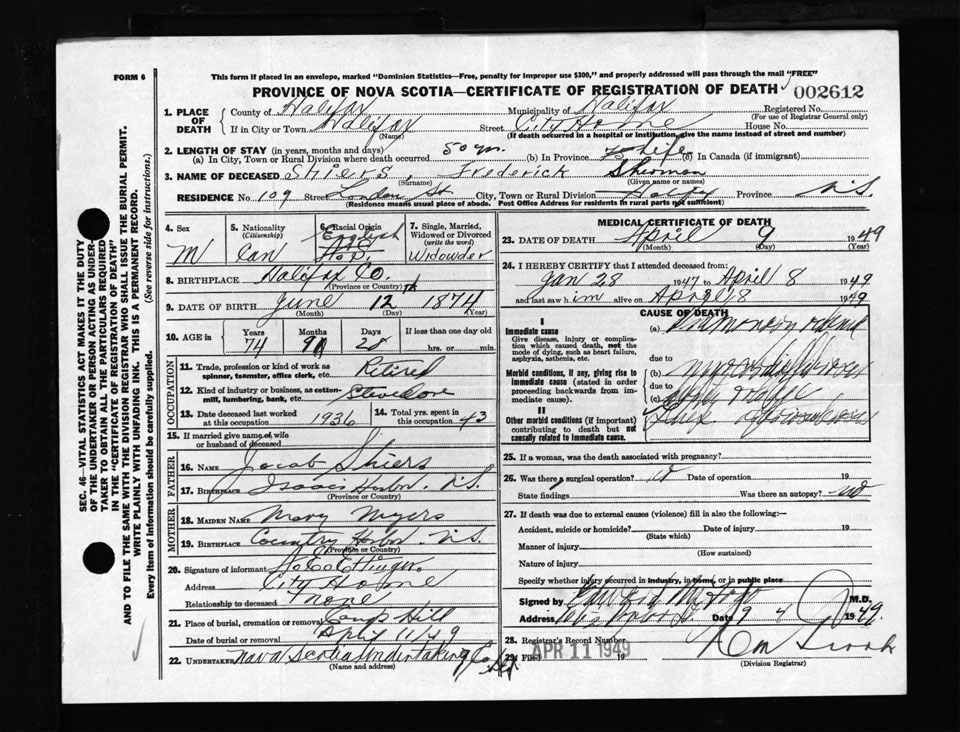 FORM 6
This form if placed in an envelope, marked "Dominion Statistics—Free, penalty for improper use $300," and properly addressed will pass through the mail "FREE"
PROVINCE OF NOVA SCOTIA—CERTIFICATE OF REGISTRATION OF DEATH 002612
1. PLACE OF DEATH
County of Halifax Municipality of Halifax Registered No.
(For use of Registrar General only)
If in City or Town Halifax Street City Home House No.
(Name) (If death occurred in a hospital or institution, give the name instead of street and number)
2. LENGTH OF STAY (in years, months and days)
(a) In City, Town or Rural Division where death occurred 50 yr. (b) In Province Life (c) In Canada (if immigrant)
3. NAME OF DECEASED Shiers, Frederick Sherman
(Surname) (Given name or names)
RESIDENCE No. 109 Street London St City, Town or Rural Division Halifax Province N.S.
(Residence means usual place of abode. Post Office Address for residents in rural parts not sufficient)
4. Sex M
5. Nationality (Citizenship) Can
6. Racial Origin English
7. Single, Married, Widowed or Divorced (write the word) Widower
8. BIRTHPLACE Halifax Co.
(Province or Country)
9. DATE OF BIRTH June 12th 1874
(Month) (Day) (Year)
10. AGE in Years Months Days If less than one day old
74 9 28 hrs. or min.
OCCUPATION
11. Trade, profession or kind of work as spinner, teamster, office clerk, etc. Retired
12. Kind of industry or business, as cotton-mill, lumbering, bank, etc. Stevedore
13. Date deceased last worked at this occupation 1936
14. Total yrs. spent in this occupation 43
15. If married give name of wife or husband of deceased
FATHER
16. NAME Jacob Shiers
17. BIRTHPLACE Isaacs Harbor N.S.
(Province or Country)
MOTHER
18. MAIDEN NAME Mary Myers
19. BIRTHPLACE Country Harbor N.S.
(Province or Country)
20. Signature of informant
Address City Home
Relationship to deceased None
21. Place of burial, cremation or removal Camp Hill
Date of burial or removal April 11/49
22. UNDERTAKER Nova Scotia Undertaking Co. Ltd
(Name and address)
MEDICAL CERTIFICATE OF DEATH
23. DATE OF DEATH April 9 1949
(Month) (Day) (Year)
24. I HEREBY CERTIFY that I attended deceased from:
Jan 28 1947 to April 8 1949
and last saw him alive on April 8 1949
CAUSE OF DEATH
I
Immediate cause
Give disease, injury or complication which caused death, not the mode of dying, such as heart failure, asphyxia, asthenia, etc.
Morbid conditions, if any, giving rise to immediate cause (stated in order proceeding backwards from immediate cause).
II
Other morbid conditions (if important) contributing to death but not causally related to immediate cause.
(a)
due to
(b)
due to
(c)
25. If a woman, was the death associated with pregnancy?
26. Was there a surgical operation? Date of operation 19
State findings Was there an autopsy? no
27. If death was due to external causes (violence) fill in also the following:—
Accident, suicide or homicide? Date of injury 19
(State which)
Manner of injury
(How sustained)
Nature of injury
Specify whether injury occurred in industry, in home, or in public place
Signed by M.D.
Address Date 9 4 1949
28. Registrar's Record Number
29. Filed APR 11 1949 19
(Division Registrar)
SEC. 46—VITAL STATISTICS ACT MAKES IT THE DUTY
OF THE UNDERTAKER OR PERSON ACTING AS UNDER-
TAKER TO OBTAIN ALL THE PARTICULARS REQUIRED
IN THE "CERTIFICATE OF REGISTRATION OF DEATH"
AND TO FILE THE SAME WITH THE DIVISION REGISTRAR WHO SHALL ISSUE THE BURIAL PERMIT.
WRITE PLAINLY WITH UNFADING INK. THIS IS A PERMANENT RECORD.
Every item of information should be carefully supplied. (See reverse side for instructions.)